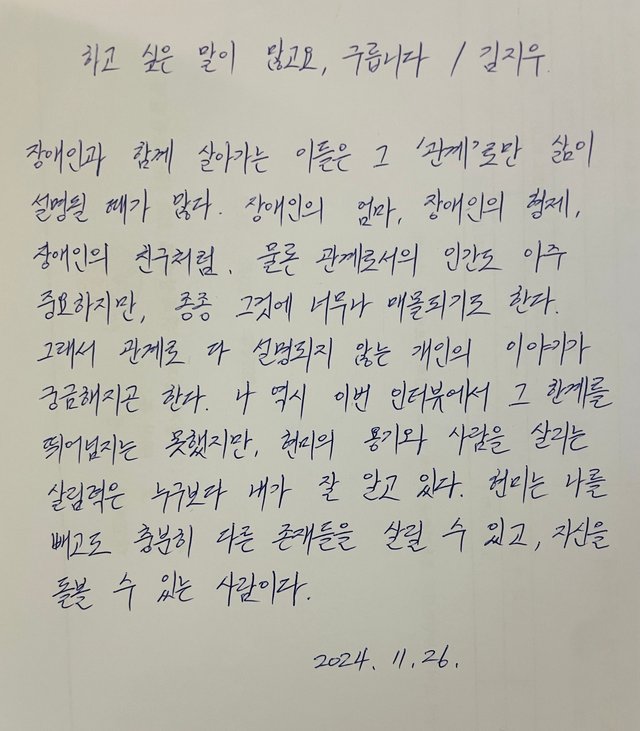 하고 싶은 말이 많고요, 구릅니다 / 김지우.
장애인과 함께 살아가는 이들은 그 '관계'로만 삶이
설명될 때가 많다. 장애인의 엄마, 장애인의 형제,
장애인의 친구처럼. 물론 관계로서의 인간도 아주
중요하지만, 종종 그것에 너무나 매몰되기도 한다.
그래서 관계로 다 설명되지 않는 개인의 이야기가
궁금해지곤 한다. 나 역시 이번 인터뷰에서 그 한계를
뛰어넘지는 못했지만, 현미의 용기와 사람을 살리는
살림력은 누구보다 내가 잘 알고 있다. 현미는 나를
빼고도 충분히 다른 존재들을 살릴 수 있고, 자신을
돌볼 수 있는 사람이다.
2024. 11. 26.